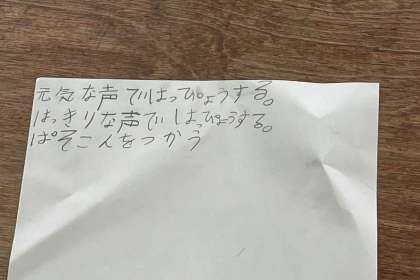 元気な声ではっぴょうする。
はっきりな声ではっぴょうする。
ぱそこんをつかう